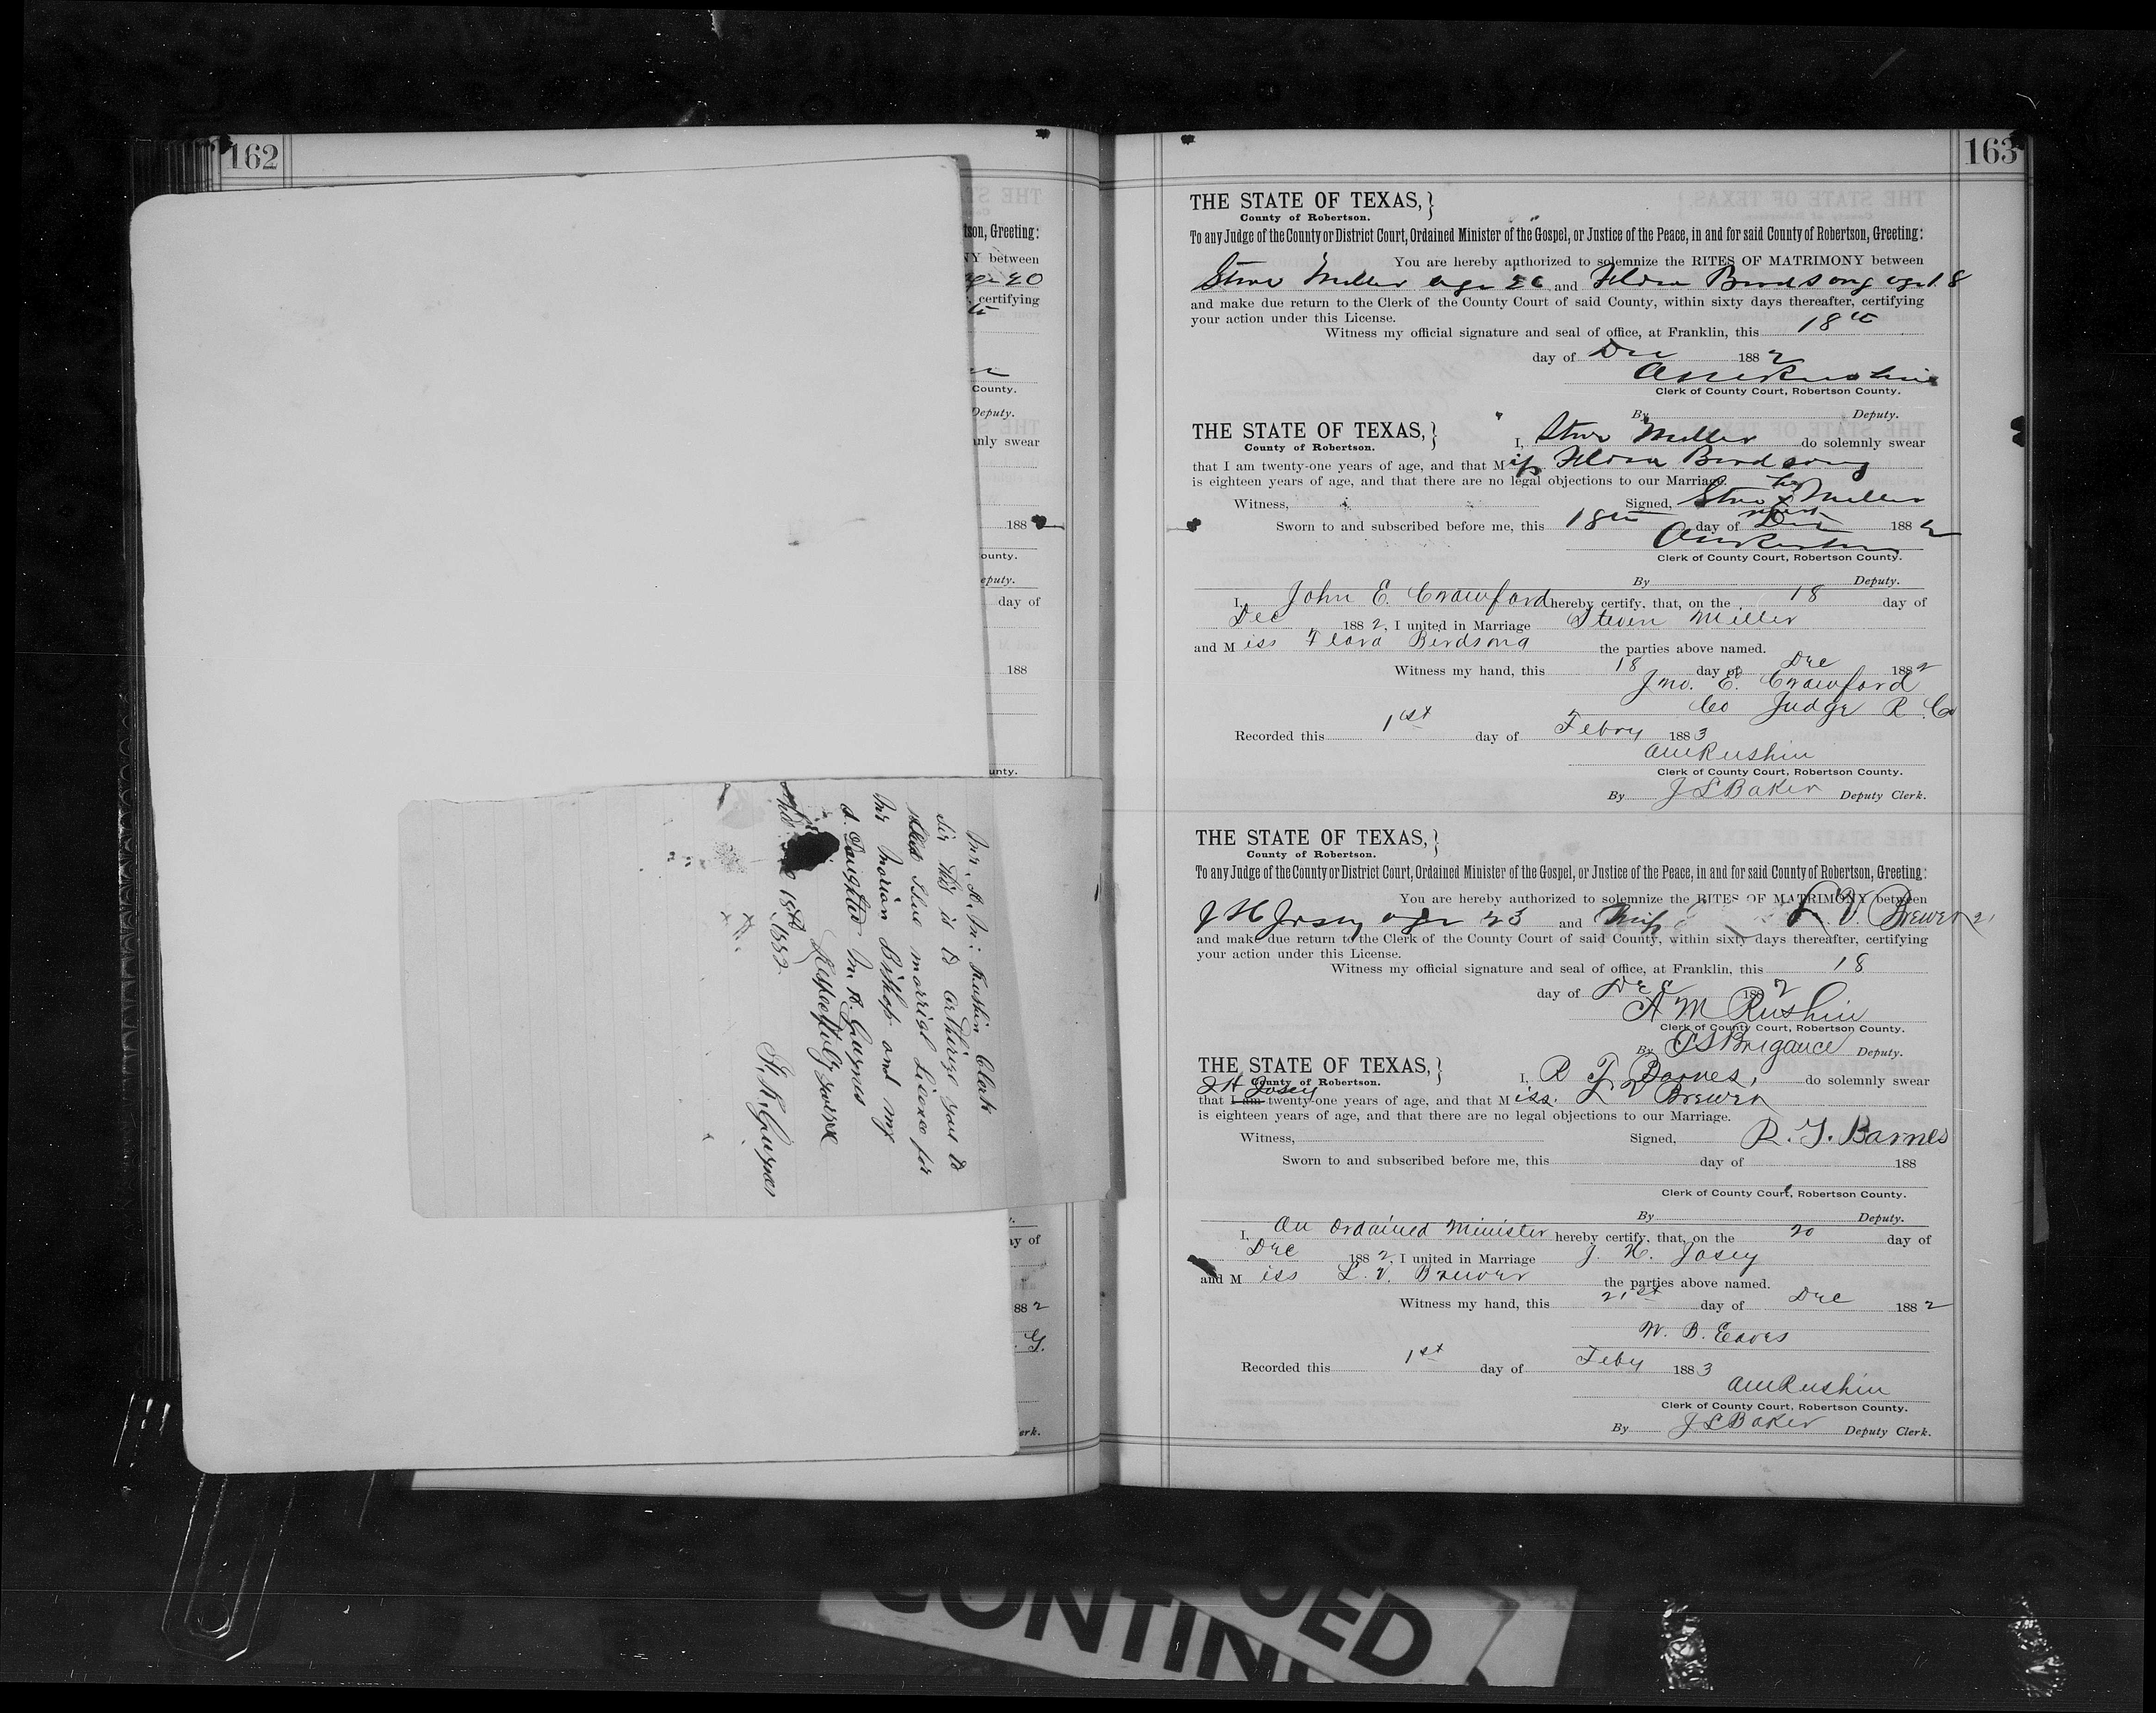 162
THE ST
tson, Greeting:
NY between
age 20
certifying
County.
Deputy.
nly swear
188
ounty.
eputy.
day of
188
unty.
Mr. A. M. Rushin Clerk
Sir this is to arthirize you to
Isue marrige License for
Mr Morion Bishop and my
Daughter M. A. Guynes
Respectfuly yours
18th 1882.
Guynes
ay of
882
G.
erk.
163
THE STATE OF TEXAS,}
County of Robertson.
To any Judge of the County or District Court, Ordained Minister of the Gospel, or Justice of the Peace, in and for said County of Robertson, Greeting:
You are hereby authorized to solemnize the RITES OF MATRIMONY between
Steve Miller age 26 and Flora Birdsong age 18
and make due return to the Clerk of the County Court of said County, within sixty days thereafter, certifying
your action under this License.
Witness my official signature and seal of office, at Franklin, this 18th
day of Dec 1882
AM Rushin
Clerk of County Court, Robertson County.
By Deputy.
THE STATE OF TEXAS,}
County of Robertson.
I, Steve Miller do solemnly swear
that I am twenty-one years of age, and that Miss Flora Birdsong
is eighteen years of age, and that there are no legal objections to our Marriage.
his
Witness, Signed, Steve X Miller
mark
Sworn to and subscribed before me, this 18th day of Dec 1882
AM Rushin
Clerk of County Court, Robertson County.
By Deputy.
I, John E. Crawford hereby certify, that, on the 18 day of
Dec 1882, I united in Marriage Steven Miller
and Miss Flora Birdsong the parties above named.
Witness my hand, this 18 day of Dec 1882
Jno. E. Crawford
Co Judge R. Co
Recorded this 1st day of Febry 1883
AM Rushin
Clerk of County Court, Robertson County.
By J S Baker Deputy Clerk.
THE STATE OF TEXAS,}
County of Robertson.
To any Judge of the County or District Court, Ordained Minister of the Gospel, or Justice of the Peace, in and for said County of Robertson, Greeting:
You are hereby authorized to solemnize the RITES OF MATRIMONY between
J H Josey age 23 and Miss L. V. Brewer 21
and make due return to the Clerk of the County Court of said County, within sixty days thereafter, certifying
your action under this License.
Witness my official signature and seal of office, at Franklin, this 18
day of Dec 1882
A M Rushin
Clerk of County Court, Robertson County.
By C S Brigance Deputy.
THE STATE OF TEXAS,}
County of Robertson.
I, R T Barnes, do solemnly swear
J H Josey
that I am twenty-one years of age, and that Miss. L V Brewer
is eighteen years of age, and that there are no legal objections to our Marriage.
Witness, Signed, R. T. Barnes
Sworn to and subscribed before me, this day of 188
Clerk of County Court, Robertson County.
By Deputy.
I, an Ordained Minister hereby certify, that, on the 20 day of
Dec 1882, I united in Marriage J. H. Josey
and Miss L. V. Brewer the parties above named.
Witness my hand, this 21st day of Dec 1882
W. B. Eaves
Recorded this 1st day of Feby 1883
AM Rushin
Clerk of County Court, Robertson County.
By J S Baker Deputy Clerk.
CONTIN
UED